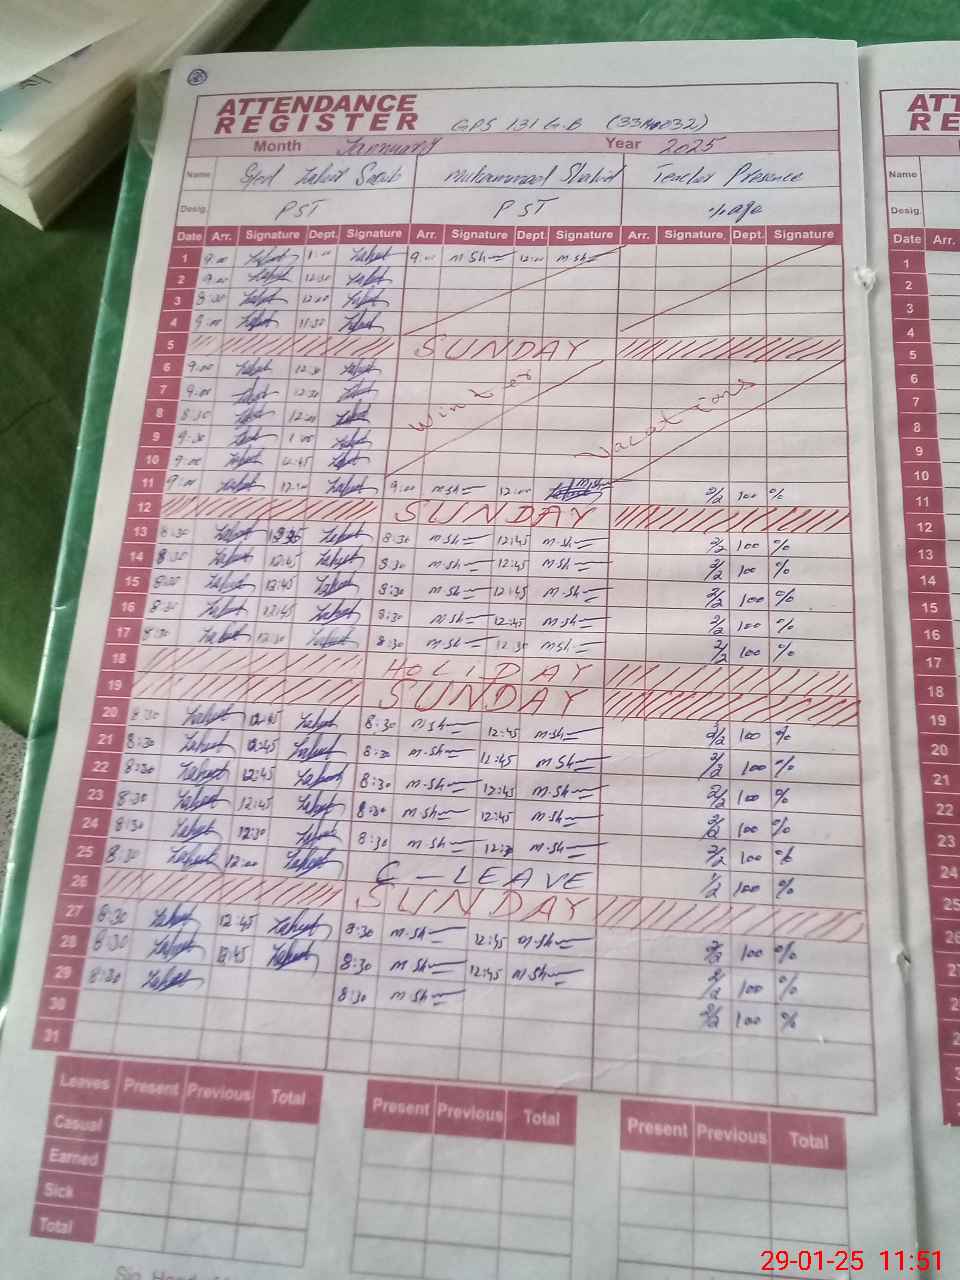 ATTENDANCE
REGISTER GPS 131 G.B
Month January Year 2025
Name Muhammad Shahid Teacher Presence
Desig. PST PST %age
Date Arr. Signature Dept. Signature Arr. Signature Dept. Signature Arr. Signature Dept. Signature
1 9:00 1:00 9:00 m.Sh 12:00 m.Sh
2 9:00 12:30
3 8:30 12:00
4 9:00 11:30
5 SUNDAY
6 9:00 12:30
7 9:00 12:30
8 8:30 12:00
9 9:30 1:00
10 9:00 12:45
Winter Vacations
11 9:00 12:00 9:00 m.Sh 12:00 2/2 100 %
12 SUNDAY
13 8:30 8:30 m.Sh 12:45 m.Sh 2/2 100 %
14 8:30 12:45 8:30 m.Sh 12:45 m.Sh 2/2 100 %
15 8:30 12:45 8:30 m.Sh 12:45 m.Sh 2/2 100 %
16 8:30 12:45 8:30 m.Sh 12:45 m.Sh 2/2 100 %
17 8:30 12:30 8:30 m.Sh 12:30 m.Sh 2/2 100 %
18 HOLIDAY
19 SUNDAY
20 8:30 12:45 8:30 m.Sh 12:45 m.Sh 2/2 100 %
21 8:30 12:45 8:30 m.Sh 12:45 m.Sh 2/2 100 %
22 8:30 12:45 8:30 m.Sh 12:45 m.Sh 2/2 100 %
23 8:30 12:45 8:30 m.Sh 12:45 m.Sh 2/2 100 %
24 8:30 12:30 8:30 m.Sh 12:30 m.Sh 2/2 100 %
25 8:30 12:00 C-LEAVE 1/2 100 %
26 SUNDAY
27 8:30 12:45 8:30 m.Sh 12:45 m.Sh 2/2 100 %
28 8:30 12:45 8:30 m.Sh 12:45 m.Sh 2/2 100 %
29 8:30 8:30 m.Sh 2/2 100 %
30
31
Leaves Present Previous Total Present Previous Total Present Previous Total
Casual
Earned
Sick
Total
ATT
RE
Name
Desig.
Date Arr.
1
2
3
4
5
6
7
8
9
10
11
12
13
14
15
16
17
18
19
20
21
22
23
24
25
29-01-25 11:51